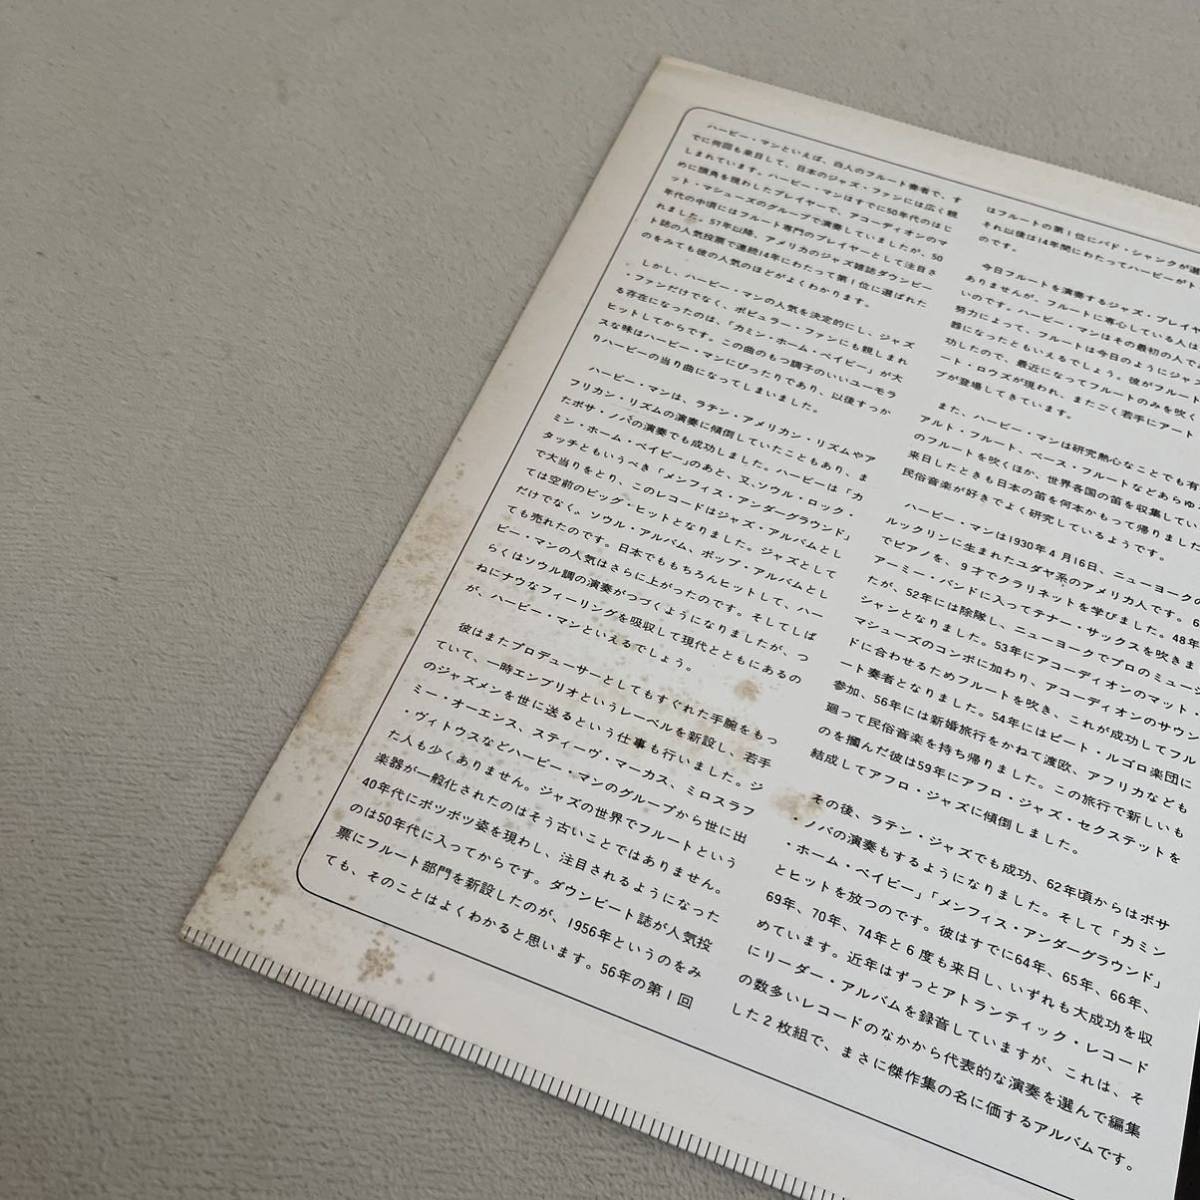 ハービー・マンといえば、白人のフルート奏者で、す
でに何回も来日して、日本のジャズ・ファンには広く親
しまれています。ハービー・マンはすでに50年代のはじ
めに頭角を現わしたプレイヤーで、アコーディオンのマ
ット・マシューズのグループで演奏していましたが、50
年代の中頃にはフルート専門のプレイヤーとして注目さ
れました。57年以降、アメリカのジャズ雑誌ダウンビー
ト誌の人気投票で連続14年にわたって第1位に選ばれた
のをみても彼の人気のほどがよくわかります。
しかし、ハービー・マンの人気を決定的にし、ジャズ
・ファンだけでなく、ポピュラー・ファンにも親しまれ
る存在になったのは、「カミン・ホーム・ベイビー」が大
ヒットしてからです。この曲のもつ調子のいいユーモラ
スな味はハービー・マンにぴったりであり、以後すっか
りハービーの当り曲になってしまいました。
ハービー・マンは、ラテン・アメリカン・リズムやア
フリカン・リズムの演奏に傾倒していたこともあり、ま
たボサ・ノバの演奏でも成功しました。ハービーは「カ
ミン・ホーム・ベイビー」のあと、又、ソウル・ロック・
タッチともいうべき「メンフィス・アンダーグラウンド」
で大当りをとり、このレコードはジャズ・アルバムとし
ては空前のビッグ・ヒットとなりました。ジャズとして
だけでなく、ソウル・アルバム、ポップ・アルバムとし
ても売れたのです。日本でももちろんヒットして、ハー
ビー・マンの人気はさらに上がったのです。そしてしば
らくはソウル調の演奏がつづくようになりましたが、つ
ねにナウなフィーリングを吸収して現代とともにあるの
が、ハービー・マンといえるでしょう。
彼はまたプロデューサーとしてもすぐれた手腕をもっ
ていて、一時エンブリオというレーベルを新設し、若手
のジャズメンを世に送るという仕事も行いました。ジ
ミー・オーエンス、スティーヴ・マーカス、ミロスラフ
・ヴィトウスなどハービー・マンのグループから世に出
た人も少くありません。ジャズの世界でフルートという
楽器が一般化されたのはそう古いことではありません。
40年代にポツポツ姿を現わし、注目されるようになった
のは50年代に入ってからです。ダウンビート誌が人気投
票にフルート部門を新設したのが、1956年というのをみ
ても、そのことはよくわかると思います。56年の第1回
はフルートの第1位にバド・シャンクが選
それ以後は14年間にわたってハービーがト
のです。
今日フルートを演奏するジャズ・プレイヤ
ありませんが、フルートに専心している人は
いのです。ハービー・マンはその最初の人で
努力によって、フルートは今日のようにジャン
器になったともいえるでしょう。彼がフルート
功したので、最近になってフルートのみを吹く
ート・ロウズが現われ、またごく若手にアート
プが登場してきています。
また、ハービー・マンは研究熱心なことでも有
アルト・フルート、ベース・フルートなどあらゆ
のフルートを吹くほか、世界各国の笛を収集してい
来日したときも日本の笛を何本かもって帰りました
民俗音楽が好きでよく研究しているようです。
ハービー・マンは1930年4月16日、ニューヨークの
ルックリンに生まれたユダヤ系のアメリカ人です。6
でピアノを、9才でクラリネットを学びました。48年
アーミー・バンドに入ってテナー・サックスを吹きま
たが、52年には除隊し、ニューヨークでプロのミュージ
シャンとなりました。53年にアコーディオンのマット・
マシューズのコンボに加わり、アコーディオンのサウン
ドに合わせるためフルートを吹き、これが成功してフル
ート奏者となりました。54年にはピート・ルゴロ楽団に
参加、56年には新婚旅行をかねて渡欧、アフリカなども
廻って民俗音楽を持ち帰りました。この旅行で新しいも
のを摑んだ彼は59年にアフロ・ジャズ・セクステットを
結成してアフロ・ジャズに傾倒しました。
その後、ラテン・ジャズでも成功、62年頃からはボサ
・ノバの演奏もするようになりました。そして「カミン
・ホーム・ベイビー」「メンフィス・アンダーグラウンド」
とヒットを放つのです。彼はすでに64年、65年、66年、
69年、70年、74年と6度も来日し、いずれも大成功を収
めています。近年はずっとアトランティック・レコード
にリーダー・アルバムを録音していますが、これは、そ
の数多いレコードのなかから代表的な演奏を選んで編集
した2枚組で、まさに傑作集の名に価するアルバムです。